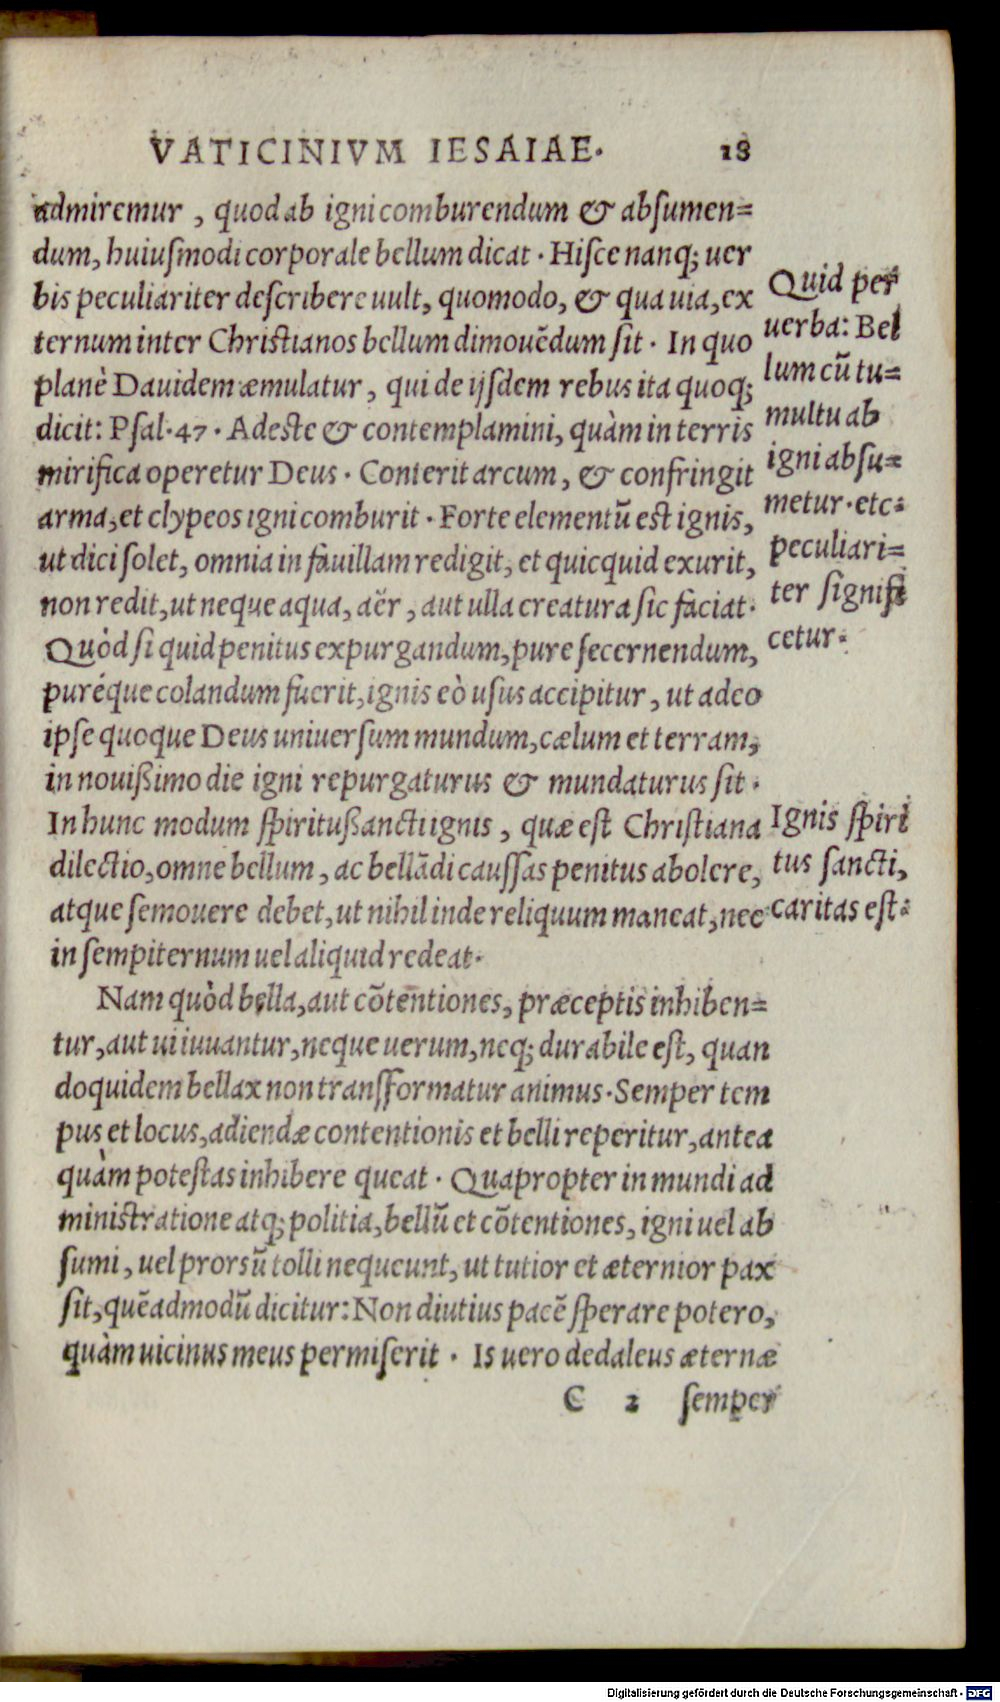 VATICINIVM IESAIAE.
18
admiremur, quod ab igni comburendum & absumen=
dum, huiusmodi corporale bellum dicat. Hisce nanq; uer
bis peculiariter describere uult, quomodo, & qua uia, ex
ternum inter Christianos bellum dimouẽdum sit. In quo
planè Dauidem æmulatur, qui de ijsdem rebus ita quoq;
dicit: Psal.47. Adeste & contemplamini, quàm in terris
mirifica operetur Deus. Conterit arcum, & confringit
arma, et clypeos igni comburit. Forte elementũ est ignis,
ut dici solet, omnia in fauillam redigit, et quicquid exurit,
non redit, ut neque aqua, aër, aut ulla creatura sic faciat.
Quòd si quid penitus expurgandum, pure secernendum,
puréque colandum fuerit, ignis eò usus accipitur, ut adeo
ipse quoque Deus uniuersum mundum, cælum et terram,
in nouißimo die igni repurgaturus & mundaturus sit.
In hunc modum spiritußancti ignis, quæ est Christiana
dilectio, omne bellum, ac bellãdi caussas penitus abolere,
atque semouere debet, ut nihil inde reliquum maneat, nec
in sempiternum uel aliquid redeat.
Nam quòd bella, aut cõtentiones, præceptis inhiben=
tur, aut ui iuuantur, neque uerum, neq; durabile est, quan
doquidem bellax non transformatur animus. Semper tem
pus et locus, adiendæ contentionis et belli reperitur, antea
quàm potestas inhibere queat. Quapropter in mundi ad
ministratione atq; politia, bellũ et cõtentiones, igni uel ab
sumi, uel prorsũ tolli nequeunt, ut tutior et æternior pax
sit, quẽadmodũ dicitur: Non diutius pacẽ sperare potero,
quàm uicinus meus permiserit. Is uero dedaleus æternæ
C 2 semper
Quid per
uerba: Bel
lum cũ tu=
multu ab
igni absu=
metur. etc.
peculiari=
ter signifi
cetur.
Ignis spiri
tus sancti,
caritas est.
Digitalisierung gefördert durch die Deutsche Forschungsgemeinschaft - DFG